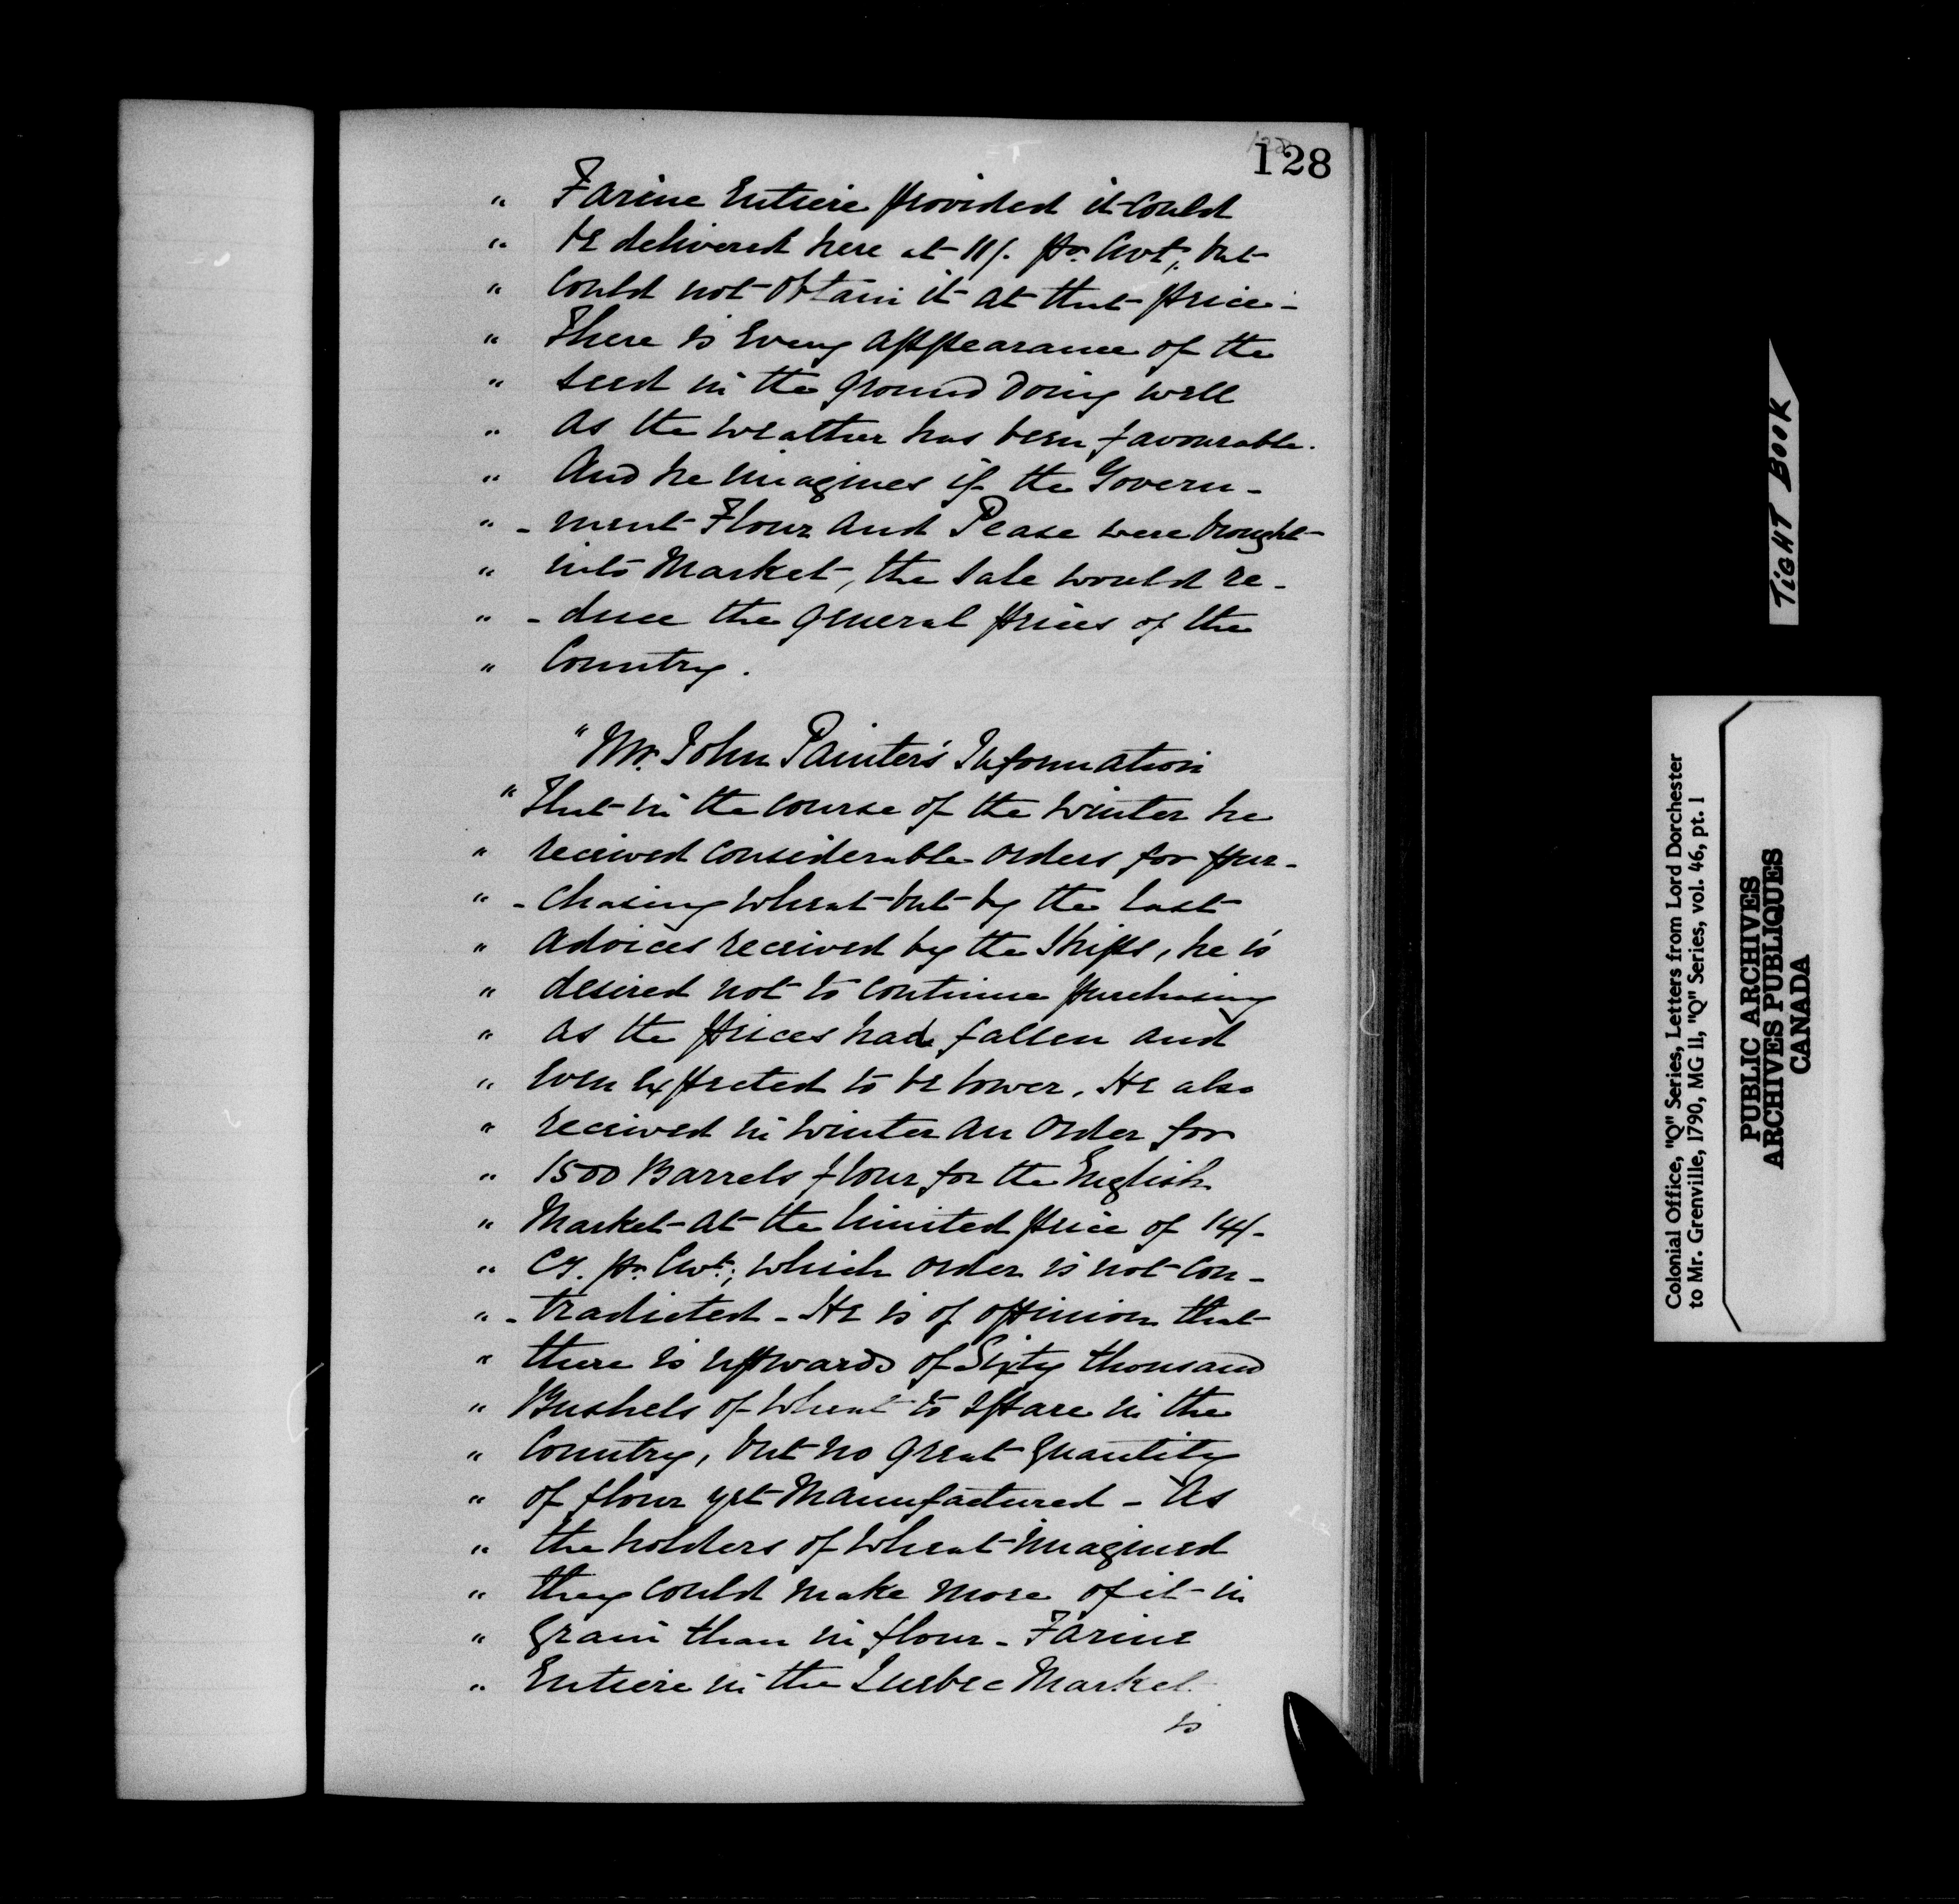 128
" Farine Entiere provided it could
" be delivered here at 11/. pr. Cwt; but
" could not obtain it at that price -
" There is every appearance of the
" seed in the ground doing well
" as the weather has been favourable.
" And he imagines if the Govern-
" -ment Flour and Pease were brought
" into Market, the sale would re-
" -duce the general prices of the
" Country.
" Mr. John Painter's Information
" That in the course of the Winter he
" received considerable orders for pur-
" -chasing wheat but by the last
" advices received by the Ships, he is
" desired not to continue purchasing
" as the prices had fallen and
" even expected to be lower. He also
" received in winter an order for
" 1500 Barrels flour for the English
" Market at the limited price of 14/-
" Cy. pr. Cwt; which order is not con-
" -tradicted - He is of opinion that
" there is upwards of Sixty thousand
" Bushels of Wheat to spare in the
" Country, but no great quantity
" of flour yet Manufactured - As
" the holders of Wheat imagined
" they could make more of it in
" Grain than in flour - Farine
" Entiere in the Quebec Market
is
TiGHT BOOK
Colonial Office, "Q" Series, Letters from Lord Dorchester
to Mr. Grenville, 1790, MG 11, "Q" Series, vol. 46, pt. 1
PUBLIC ARCHIVES
ARCHIVES PUBLIQUES
CANADA